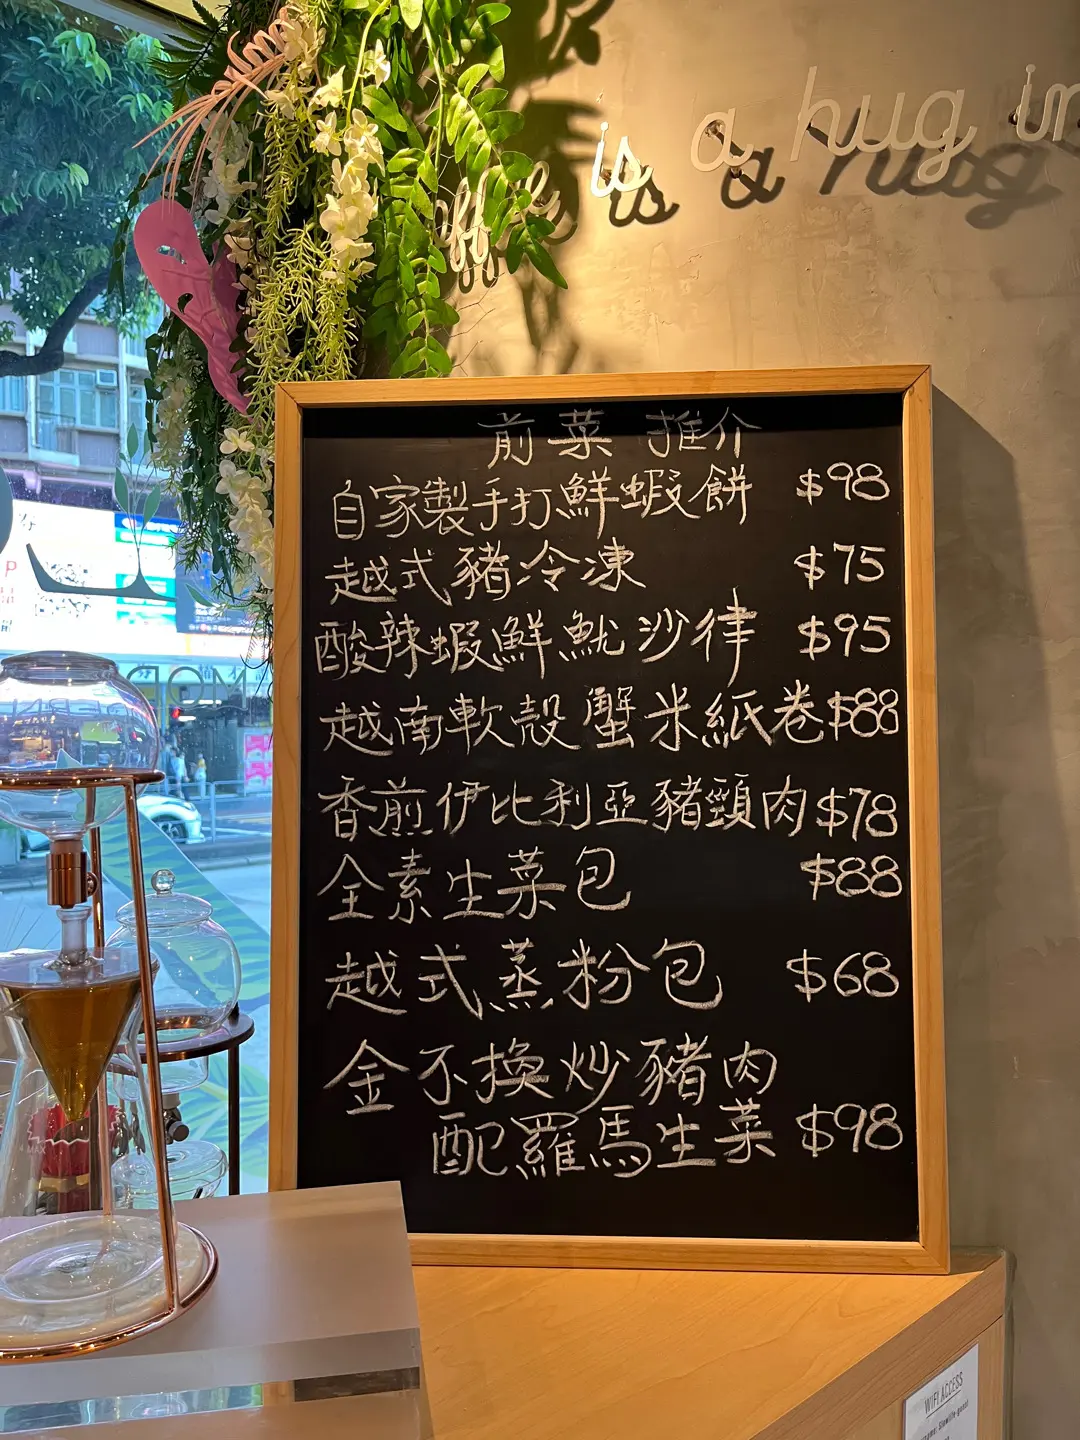 is a hug in
前菜 推介
自家製手打鮮蝦餅 $98
越式豬冷凍 $75
酸辣蝦鮮魷沙律 $95
越南軟殼蟹米紙卷 $88
香煎伊比利亞豬頸肉 $78
全素生菜包 $88
越式蒸粉包 $68
金不換炒豬肉
配羅馬生菜 $98
WIFI ACCESS